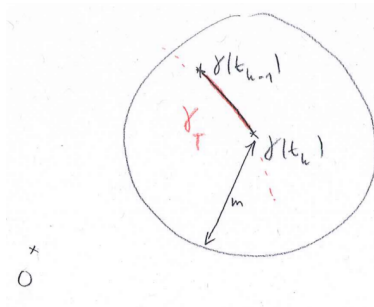 γ(t_{k-1})
γ_T
γ(t_k)
m
O